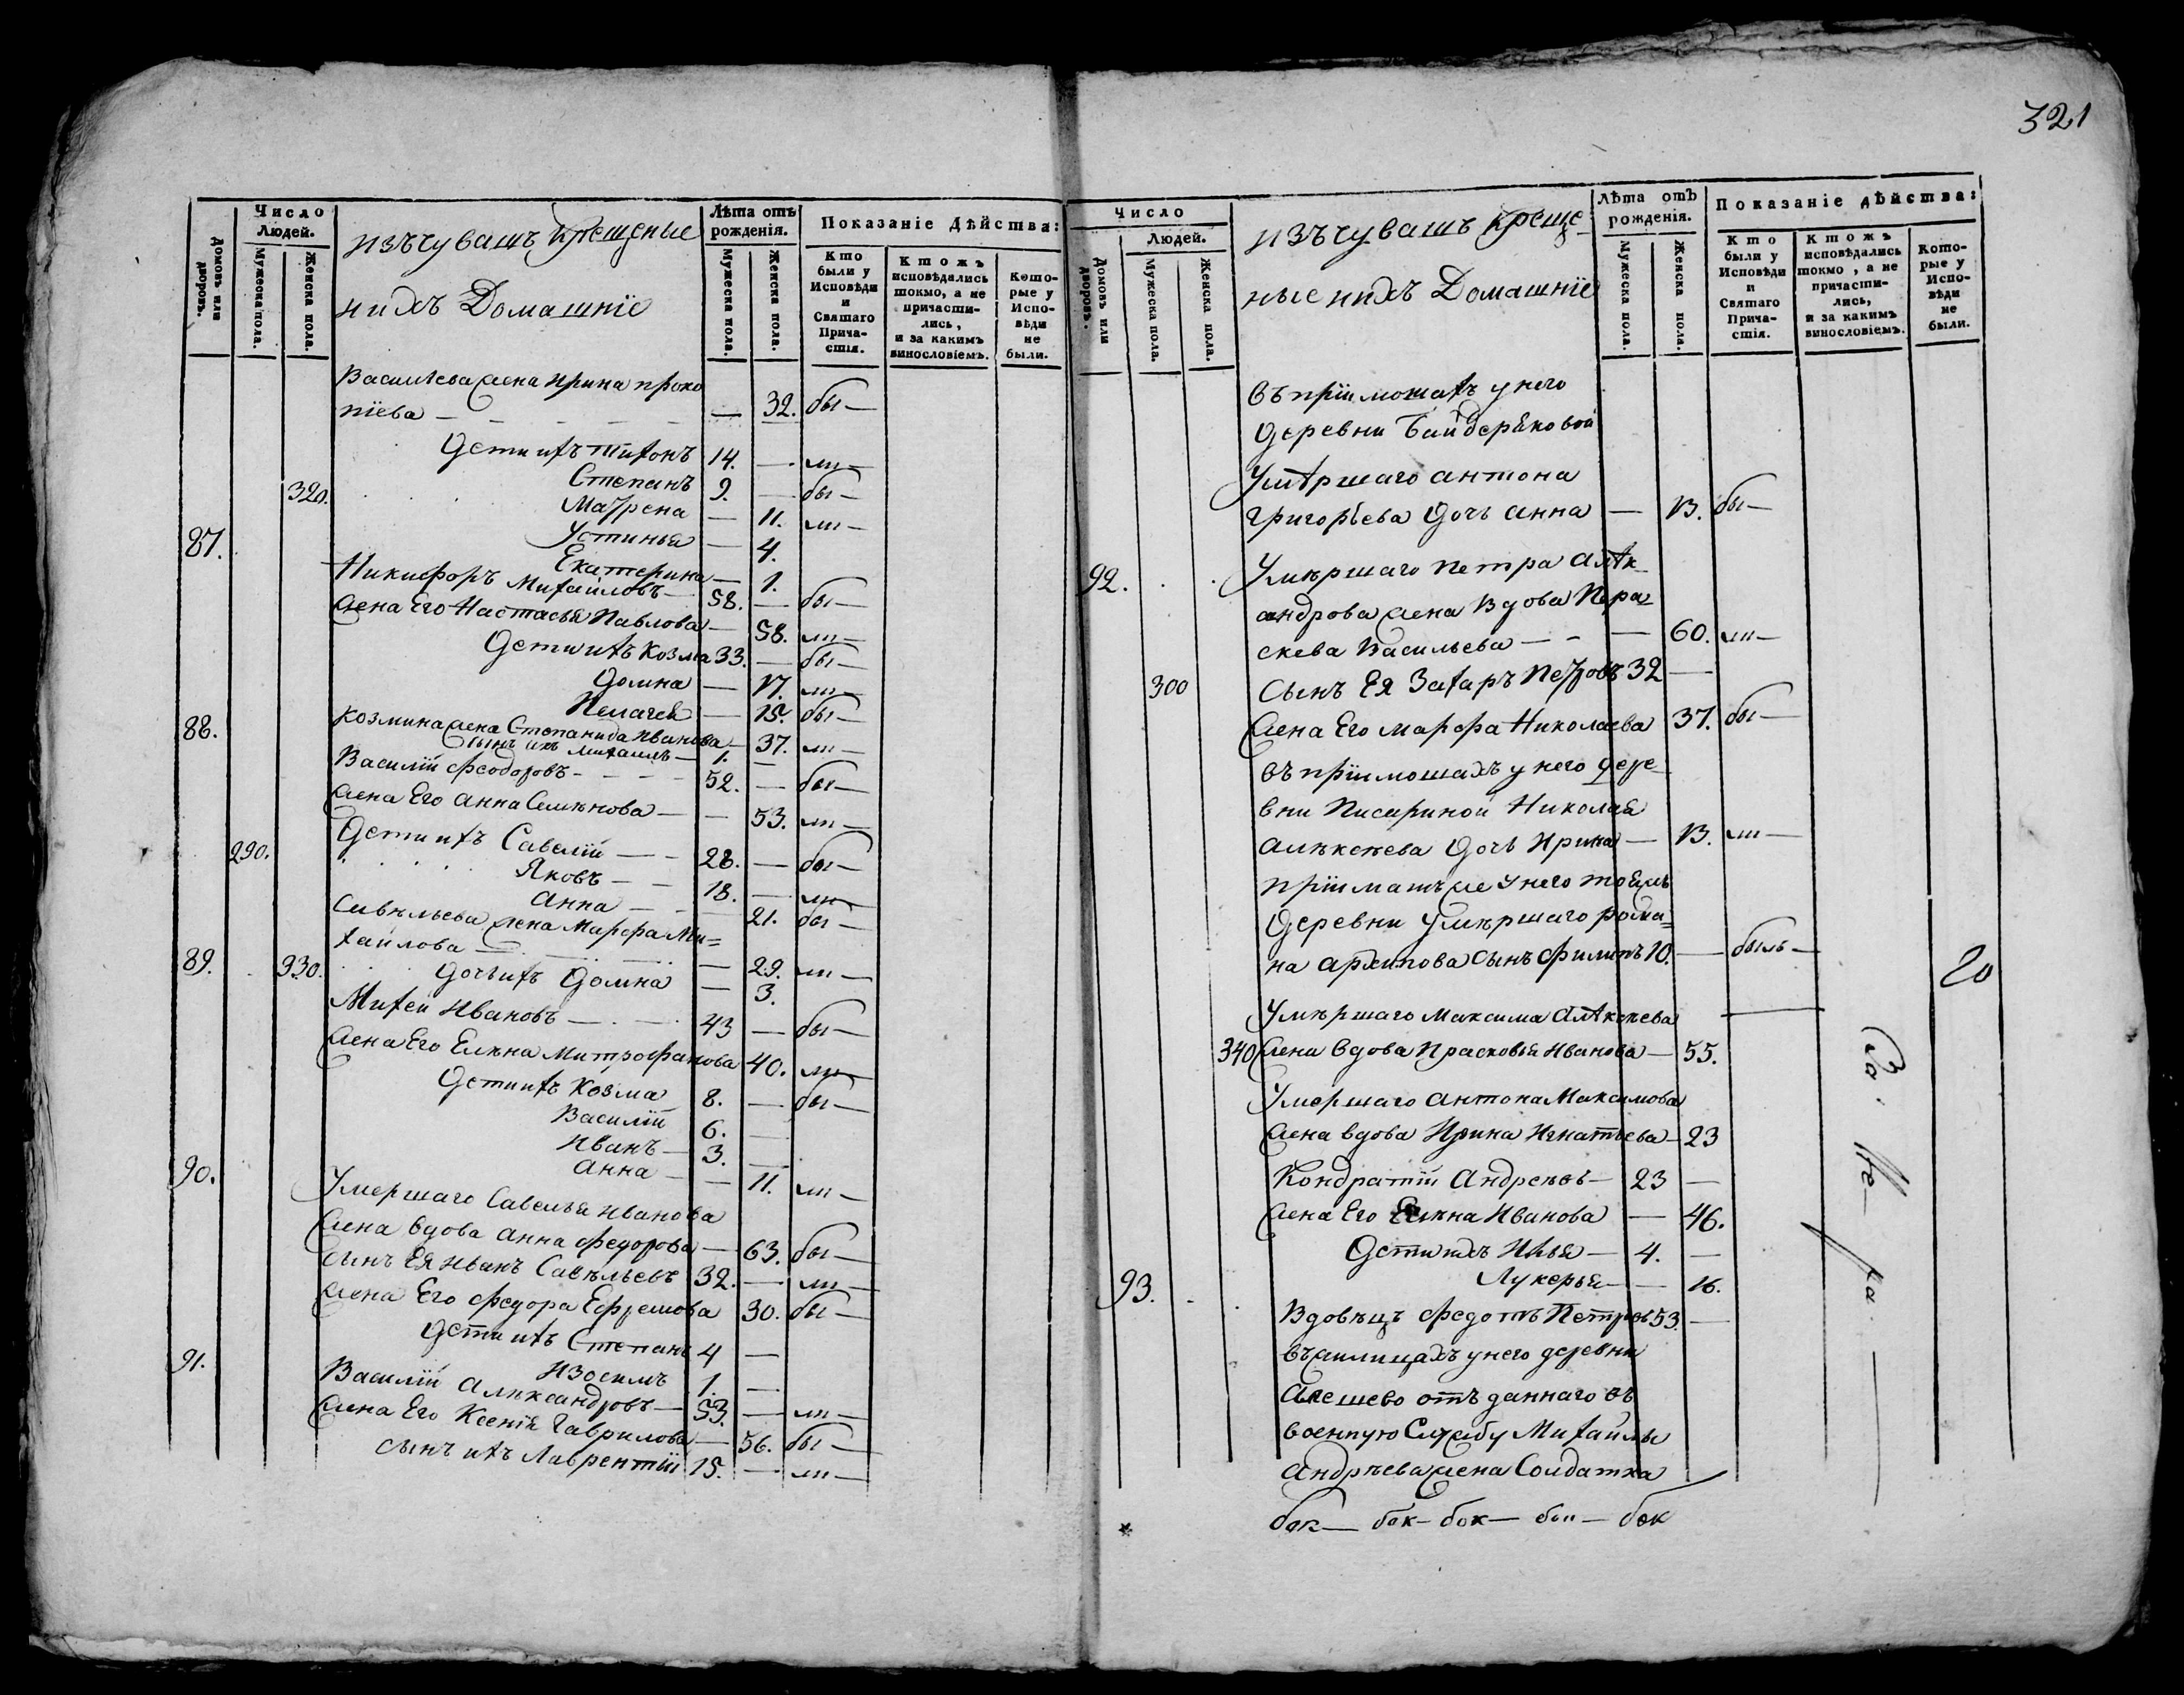 321
Число Людей.
Домовъ или дворовъ.
Мужеска пола.
Женска пола.
изъ чувашъ крещеные
нихъ Домашнїе
Лѣта отъ рожденія.
Мужеска пола.
Женска пола.
Показаніе Дѣйства:
Кто были у Исповѣди и Святаго Прича-стія.
Ктожъ исповѣдались токмо, а не причасти-лись, и за какимъ винословіемъ.
Кото-рые у Испо-вѣди не были.
Васильева жена Ирина проко
пїева — — 32. бы —
Дети ихъ Тихонъ 14. — ли —
Степанъ 9. — бы —
320. Матрена — 11. ли —
Устинья — 4.
Екатерина — 1.
87. Никифоръ Михайловъ — 58. — бы —
жена Его Настасья Павлова — 58. ли —
Дети ихъ Козма 33. — бы —
Домна — 17. ли —
Пелагея — 15. бы —
Козмина жена Степанида Иванова — 37. ли —
сынъ ихъ Михаилъ — 1. —
88. Василїй Феодоровъ - - - - 52. — бы —
жена Его Анна Семѣнова — — 53. ли —
Дети ихъ Савелїй — - 28. — бы —
290. Яковъ — - 18. — ли —
Анна — - — 21. бы —
Савѣльева жена Марфа Ми=
хайлова — — 29. ли —
930. дочь ихъ Домна — 3.
89. Михей Ивановъ — . — . 43 — бы —
жена Его Елѣна Митрофанова 40. ли —
Дети ихъ Козма 8. — бы —
Василїй 6. —
Иванъ — 3. —
Анна — — 11. ли —
90. Умершаго Савелья Иванова
жена вдова Анна Федорова — 63. бы —
сынъ Ея Иванъ Савѣльевъ 32. — ли —
жена Его Федора Ефремова 30. бы —
дети ихъ Степанъ 4 —
Изосимъ 1. —
91. Василїй Алѣксандровъ — 53. — ли —
жена Его Ксенїя Гаврилова — 56. бы —
сынъ ихъ Лаврентїй 15. — ли —
Число Людей.
Домовъ или дворовъ.
Мужеска пола.
Женска пола.
изъ чувашъ креще
ные нихъ Домашнїе
Лѣта отъ рожденія.
Мужеска пола.
Женска пола.
Показаніе дѣйства:
Кто были у Исповѣди и Святаго Прича-стія.
Ктожъ исповѣдались токмо, а не причасти-лись, и за какимъ винословіемъ.
Кото-рые у Испо-вѣди не были.
въ прїимошахъ у него
Деревни Байдеряковой
Умѣршаго Антона
Григорьева Дочь Анна — 13. бы —
92. Умѣршаго Петра Алѣк
андрова жена Вдова Пара
скева Васильева — - — 60. ли —
300 Сынъ Ея Захаръ Петровъ 32 —
жена Его Марфа Николаева 37. бы —
въ прїимошахъ у него дере
вни Писериной Николая
Алѣксѣева Дочь Ирина — 13. ли —
прїиматъ же у него тояжъ
Деревни Умѣршаго Рома=
на Архипова Сынъ Филипъ 10. — былъ —
Умѣршаго Максима Алѣксѣева
340 жена вдова Прасковья Иванова — 55.
Умершаго Антона Максимова
жена вдова Ирина Игнатьева — 23
Кондратїй Андреевъ — 23 —
жена Его Елѣна Иванова — 46.
Дети ихъ Илья — 4. —
Лукерья — — 16.
93. Вдовѣцъ Федотъ Петровъ 53. —
въ жилищахъ у него деревни
Алешево отъ даннаго въ
военную Службу Михайлы
Андрѣева жена Солдатка
бок — бок — бок — бок — бок
20